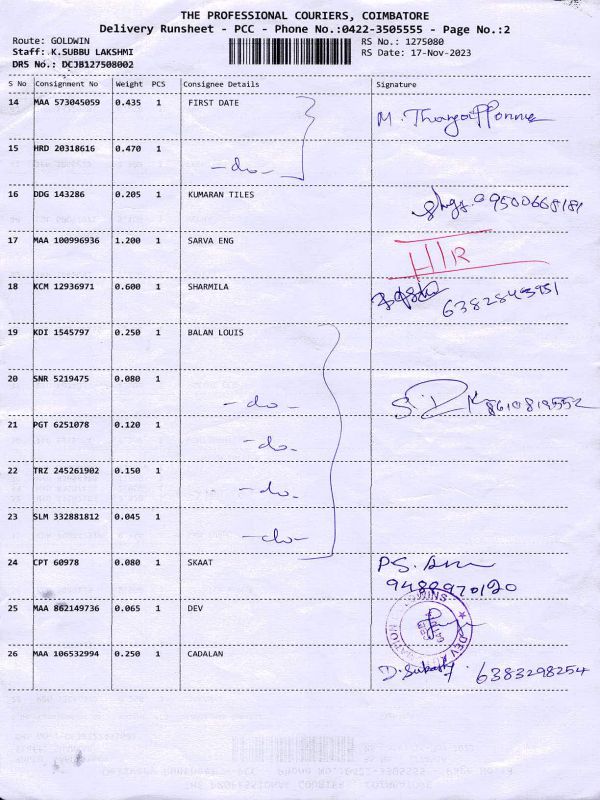 THE PROFESSIONAL COURIERS, COIMBATORE
Delivery Runsheet - PCC - Phone No.:0422-3505555 - Page No.:2
Route: GOLDWIN
RS No.: 1275080
Staff: K.SUBBU LAKSHMI
RS Date: 17-Nov-2023
DRS No.: DCJB127508002
S No Consignment No Weight PCS Consignee Details Signature
14 MAA 573045059 0.435 1 FIRST DATE
15 HRD 20318616 0.470 1
-do-
16 DDG 143286 0.205 1 KUMARAN TILES 9500668181
17 MAA 100996936 1.200 1 SARVA ENG
18 KCM 12936971 0.600 1 SHARMILA
19 KDI 1545797 0.250 1 BALAN LOUIS
20 SNR 5219475 0.080 1
-do- 8610819552
21 PGT 6251078 0.120 1
-do-
22 TRZ 245261902 0.150 1
-do-
23 SLM 332881812 0.045 1
-do-
24 CPT 60978 0.080 1 SKAAT P.S.
25 MAA 862149736 0.065 1 DEV
26 MAA 106532994 0.250 1 CADALAN
6383298254